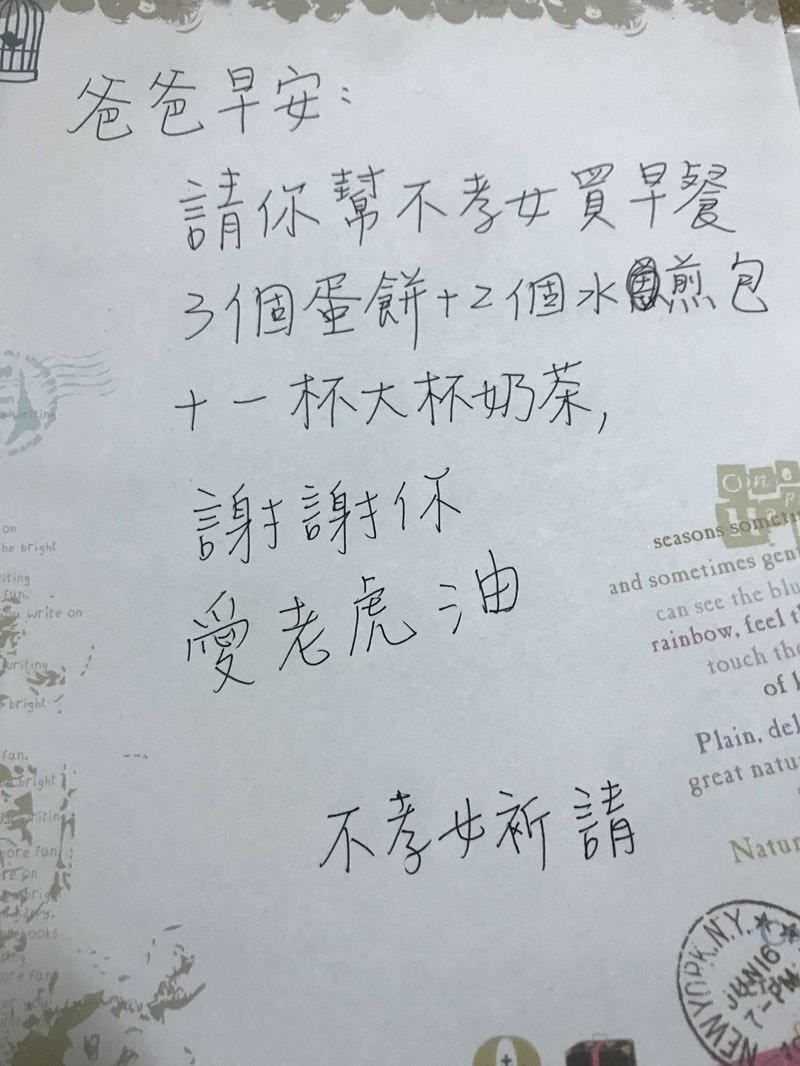 爸爸早安：
請你幫不孝女買早餐
3個蛋餅+2個水煎包
+一杯大杯奶茶，
謝謝你
愛老虎油
不孝女祈請
on
be bright
fun.
you write on
writing
bright
fun.
bright
writing
more fun
books
more fun
One
seasons someti
and sometimes gen
can see the blu
rainbow, feel t
touch the
of l
Plain, del
great natu
Natur
NEW YORK, N.Y.
JUN 16
7-PM